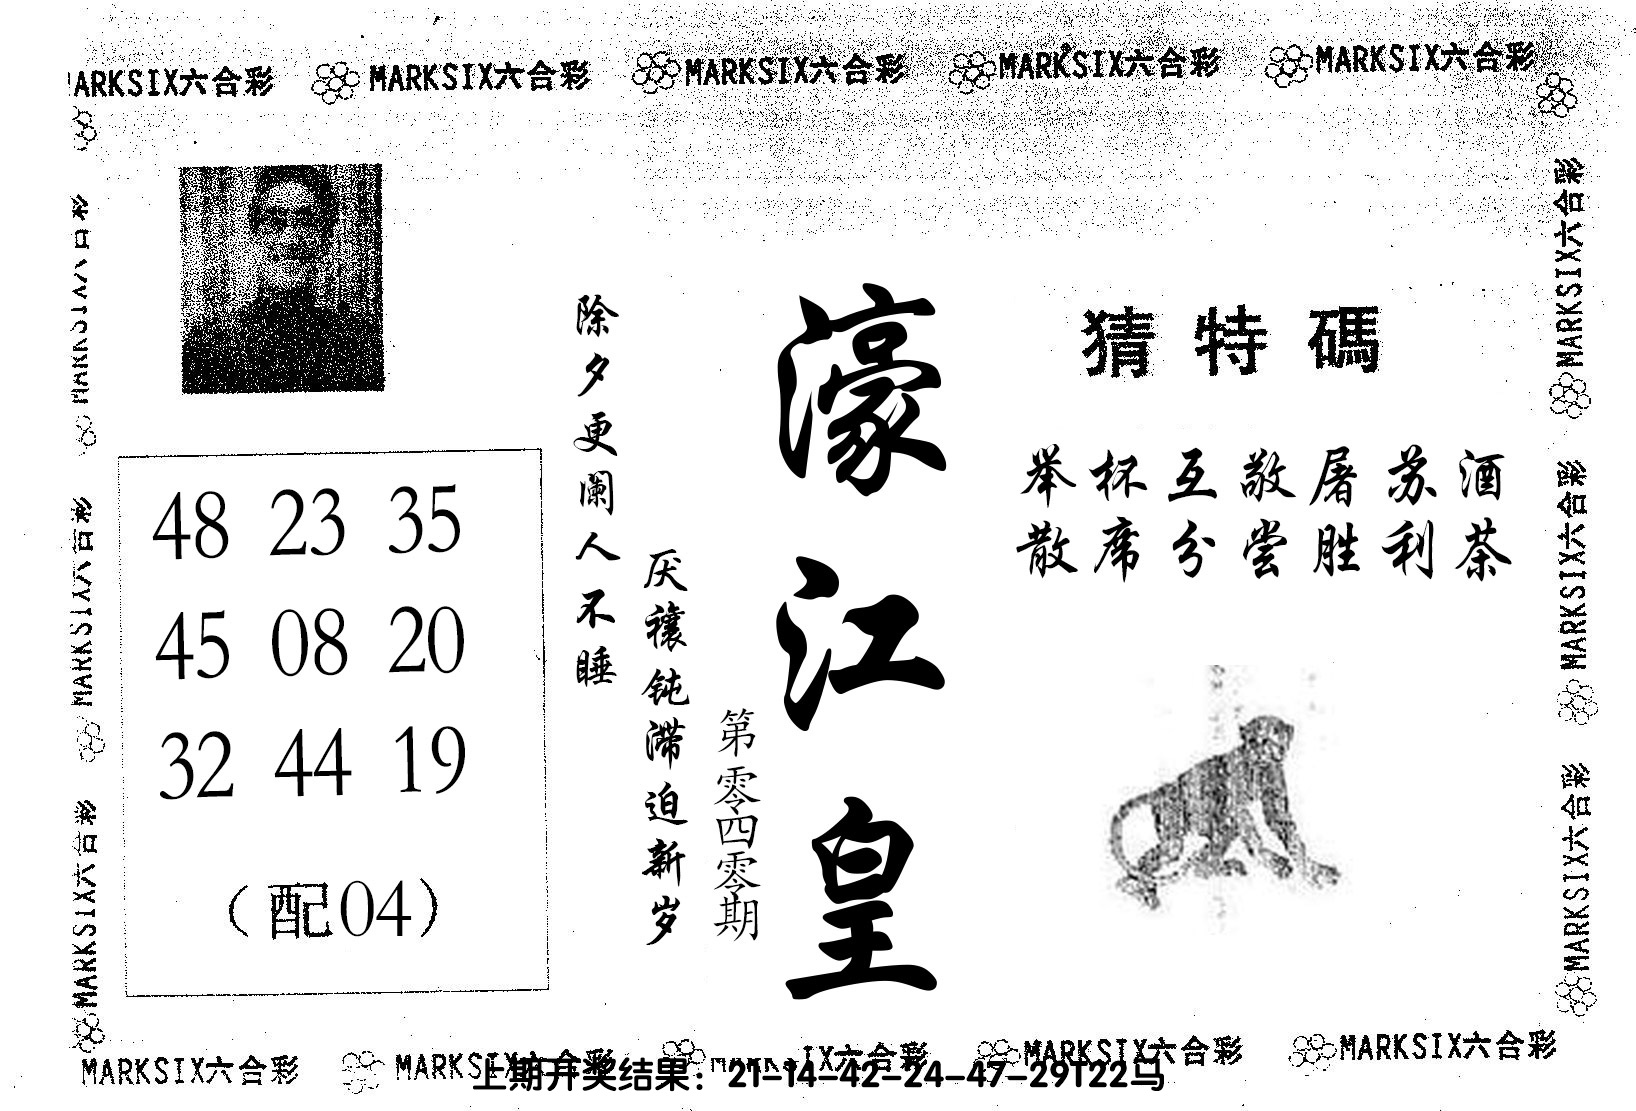 MARKSIX六合彩 MARKSIX六合彩 MARKSIX六合彩 MARKSIX六合彩
ARKSIX六合彩
猜特碼
举杯互敬屠苏酒
散席分尝胜利茶
濠江皇
第零四零期
除夕更阑人不睡
厌禳钝滞迫新岁
48 23 35
45 08 20
32 44 19
（配04）
MARKSIX六合彩
MARKSIX六合彩
MARKSIX六合彩
MARKSIX六合彩
MARKSIX六合彩
MARKSIX六合彩
MARKSIX六合彩 MARKSIX六合彩 IX六合彩 MARKSIX六合彩 MARKSIX六合彩
上期开奖结果：21-14-42-24-47-29T22马